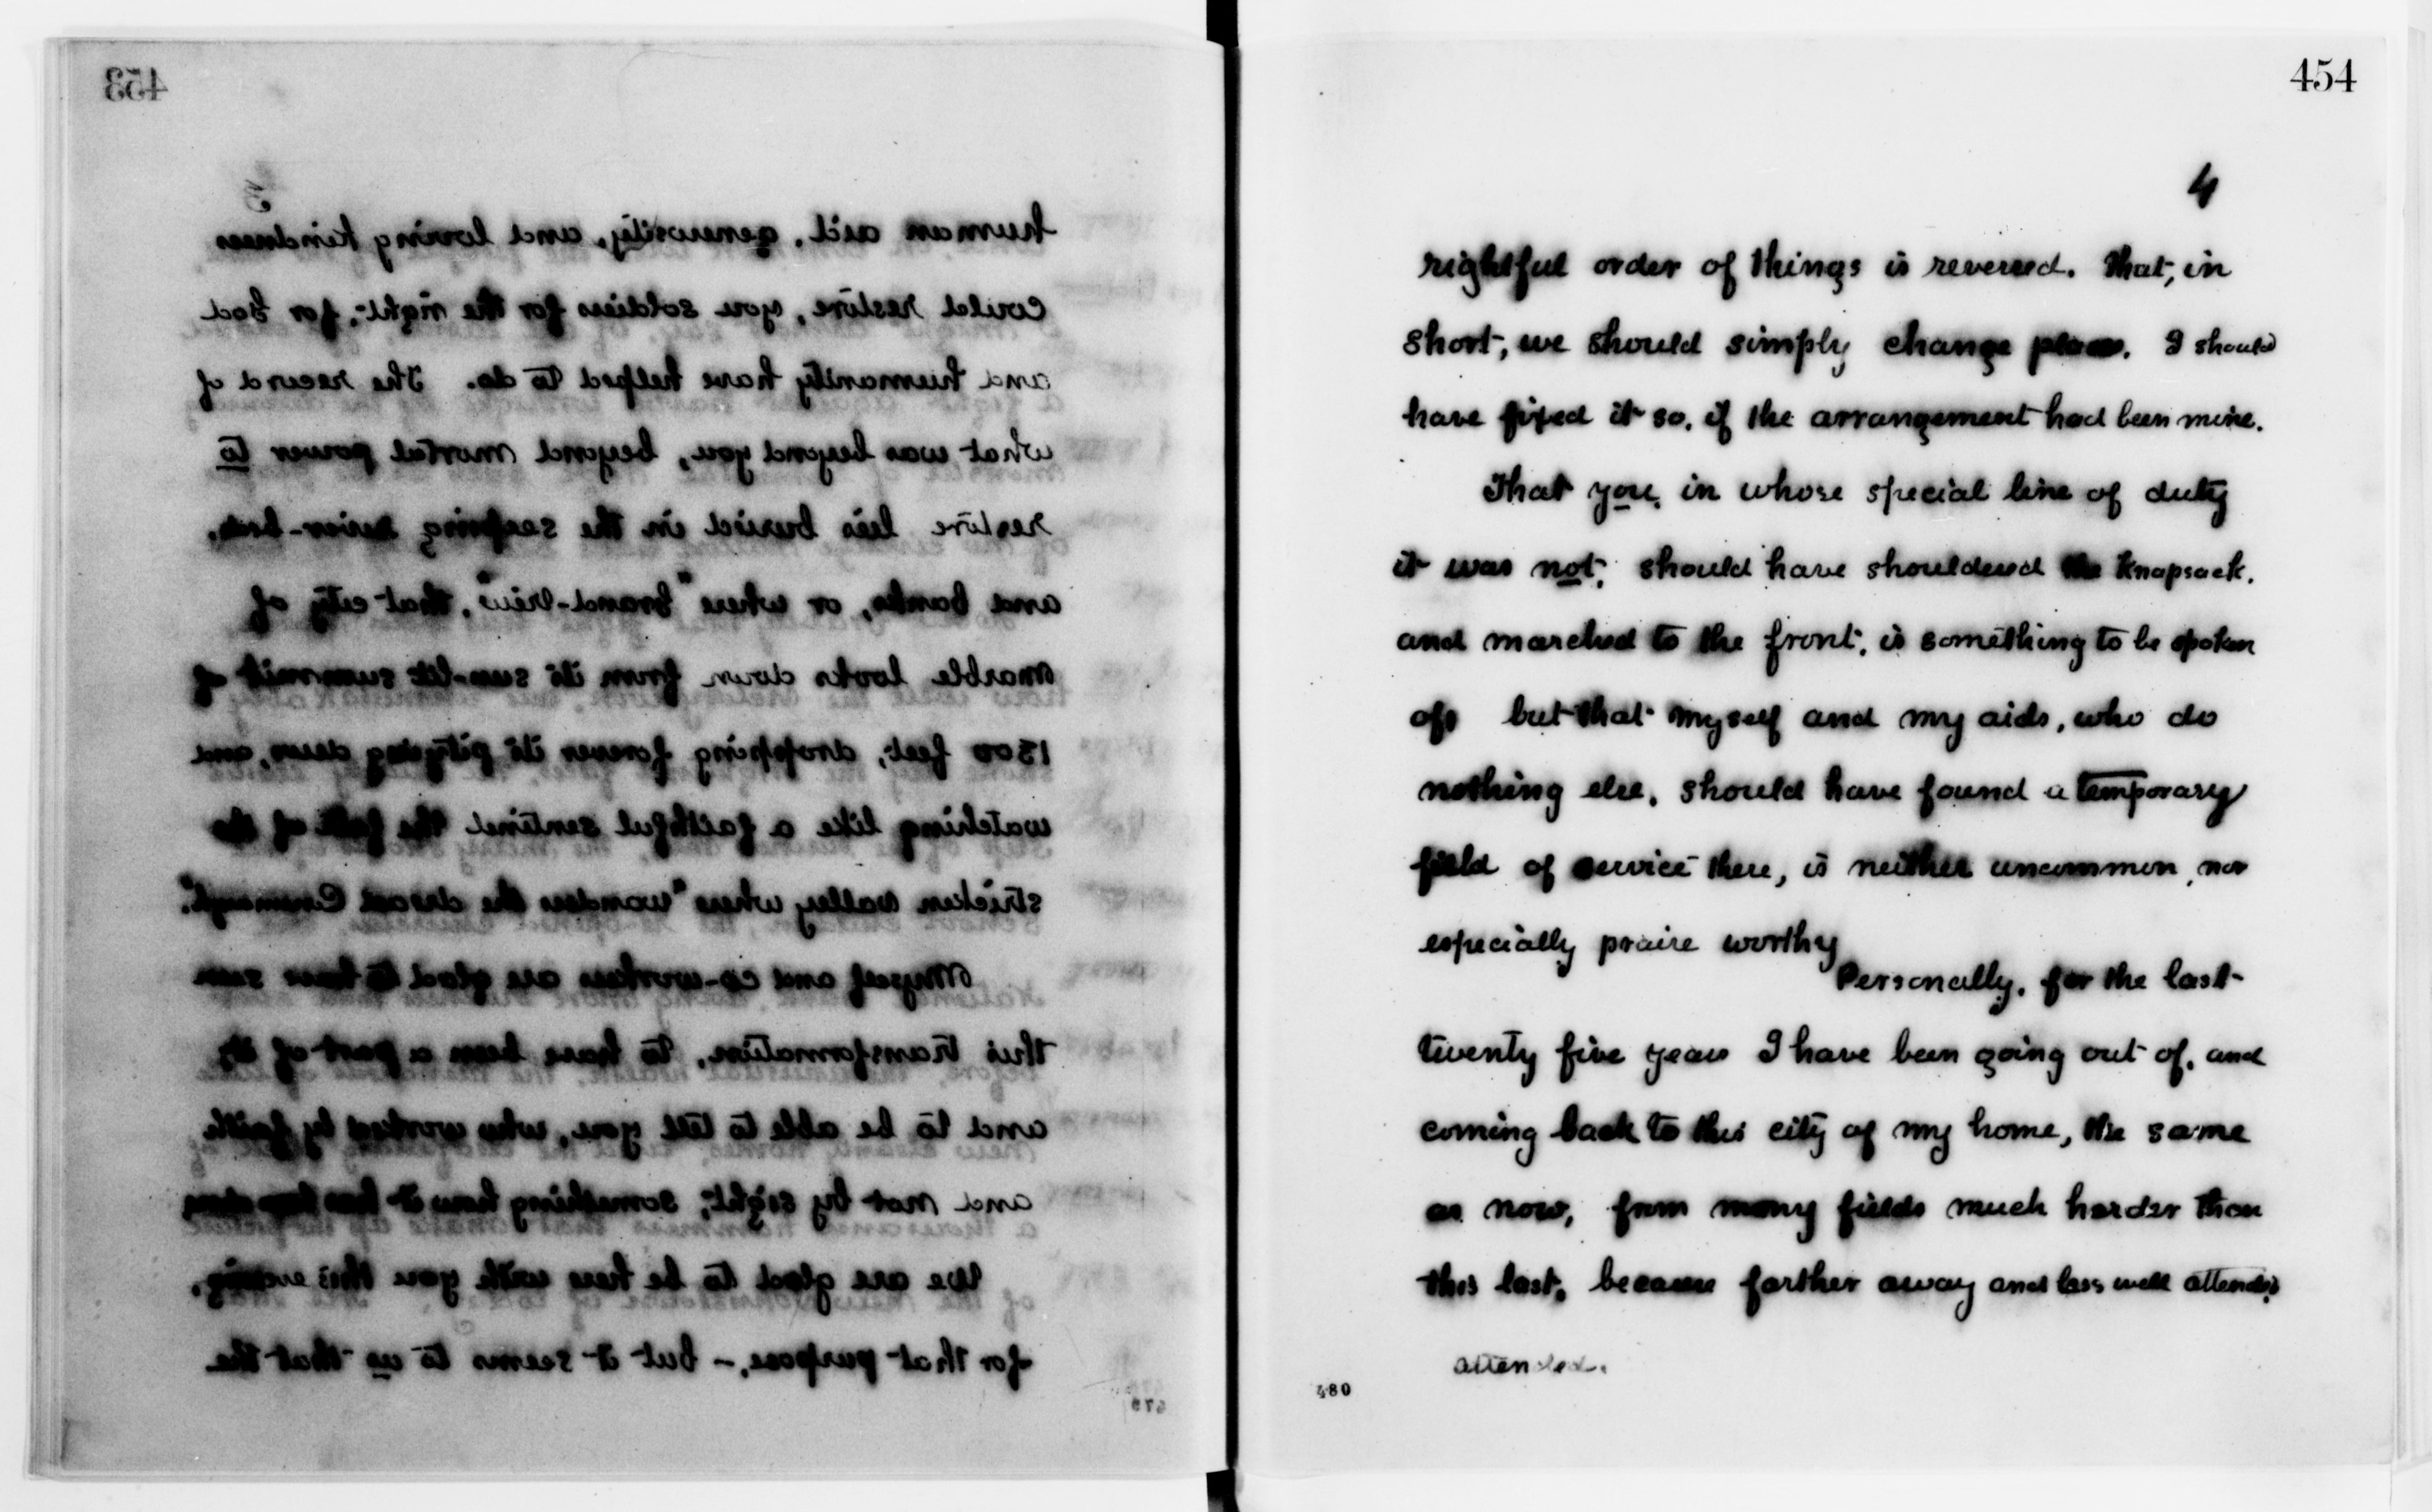 453
3
human aid, generosity, and loving kindness
could restore, you soldiers for the right, for God
and humanity have helped to do. The record of
what was beyond you, beyond mortal power to
restore lies buried in the seeping river-bed,
and banks, or where "Grand-view", that city of
marble looks down from its sun-lit summit of
1300 feet, dropping forever its pitying dews, and
watching like a faithful sentinel the fate of the
stricken valley where "wanders the dread Conemaugh".
Myself and co-workers are glad to have seen
this transformation, to have been a part of it,
and to be able to tell you, who worked by faith
and not by sight, something how it has been done
We are glad to be here with you this evening,
for that purpose, - but it seems to us that the
479
454
4
rightful order of things is reversed. That, in
short, we should simply change places. I should
have fixed it so, if the arrangement had been mine.
That you, in whose special line of duty
it was not, should have shouldered the knapsack,
and marched to the front, is something to be spoken
of, but that myself and my aids, who do
nothing else, should have found a temporary
field of service there, is neither uncommon, nor
especially praise worthy
Personally, for the last
twenty five years I have been going out of, and
coming back to this city of my home, the same
as now, from many fields much harder than
this last, because farther away and less well attended
attended.
480